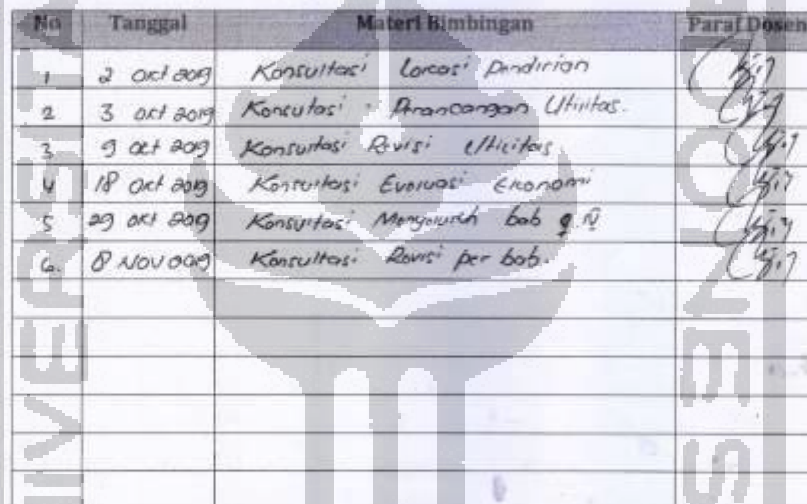 No Tanggal Materi Bimbingan Paraf Dosen
1 2 Okt 2019 Konsultasi Lokasi Pendirian
2 3 Okt 2019 Konsultasi Perancangan Utilitas.
3 9 Okt 2019 Konsultasi Revisi Utilitas.
4 18 Okt 2019 Konsultasi Evaluasi Ekonomi
5 29 Okt 2019 Konsultasi Menyeluruh bab
6. 8 Nov 2019 Konsultasi Revisi per bab.